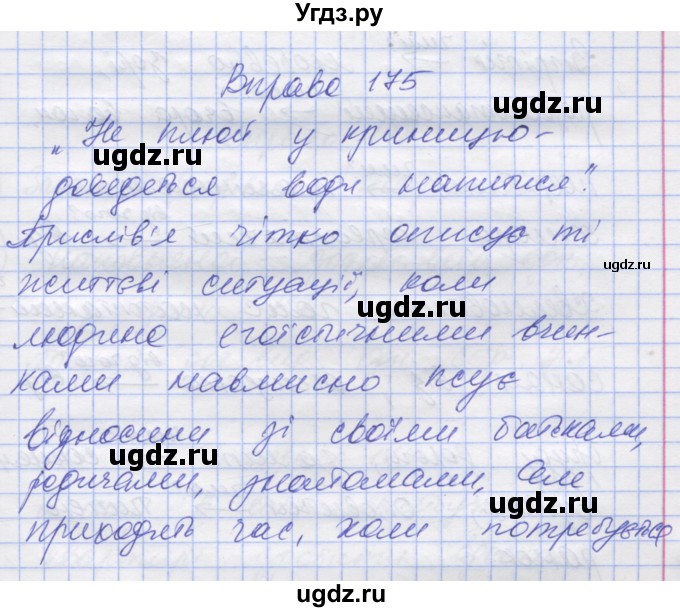 Угдз.ру
Вправа 175
ugdz.ru
„Не плюй у криницю-
ugdz.ru
доведеться води напитися".
ugdz.ru
Прислів'я чітко описує ті
ugdz.ru
життєві ситуації, коли
ugdz.ru
людина егоїстичними вчин-
ками навмисно псує
відносини зі своїми батьками,
ugdz.ru
родичами, знайомами, але
ugdz.ru
приходить час, коли потребуєтся
ugdz.ru